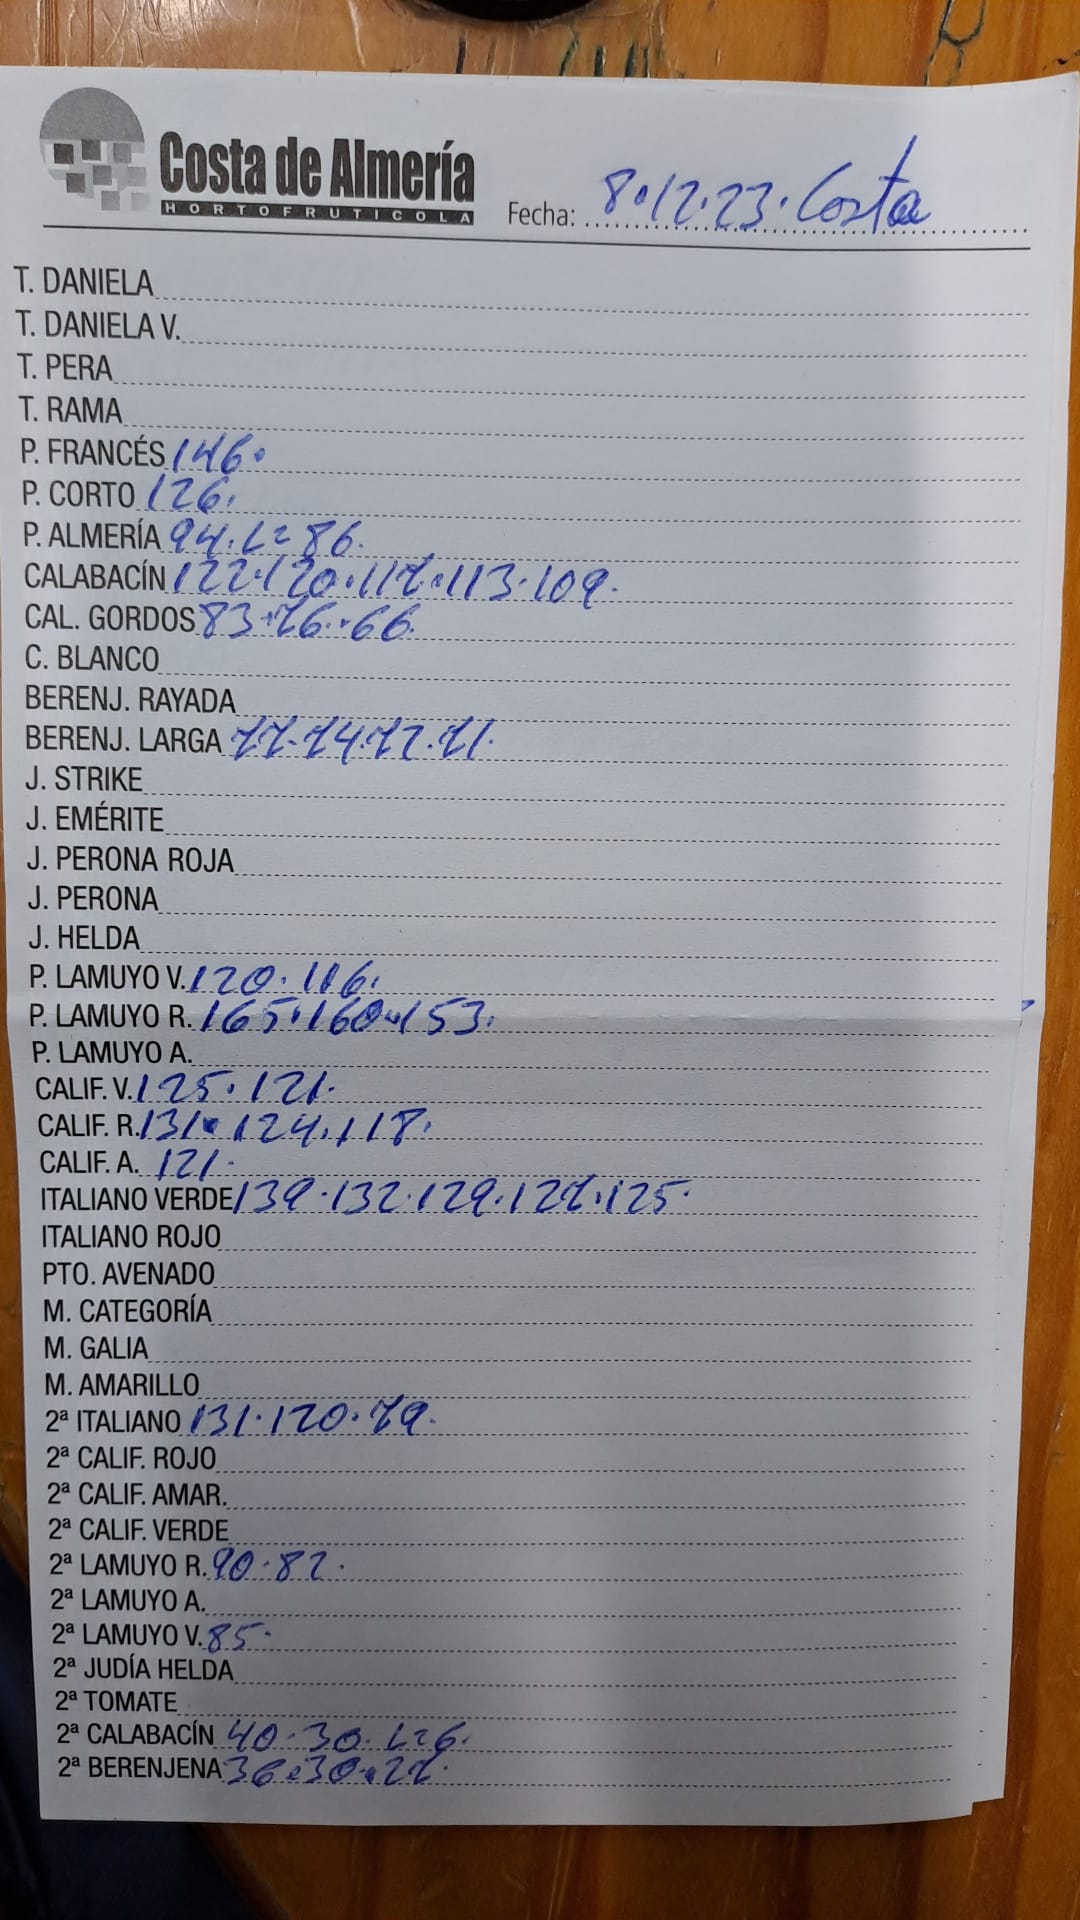 Costa de Almería
HORTOFRUTICOLA
Fecha: 8.12.23. Costa
T. DANIELA
T. DANIELA V.
T. PERA
T. RAMA
P. FRANCÉS 146.
P. CORTO 126.
P. ALMERÍA 94. L= 86.
CALABACÍN 122.120.117.113.109.
CAL. GORDOS 83.76.66.
C. BLANCO
BERENJ. RAYADA
BERENJ. LARGA 77.74.72.71.
J. STRIKE
J. EMÉRITE
J. PERONA ROJA
J. PERONA
J. HELDA
P. LAMUYO V. 120.116.
P. LAMUYO R. 165.160.153.
P. LAMUYO A.
CALIF. V. 125.121.
CALIF. R. 131.124.118.
CALIF. A. 121.
ITALIANO VERDE 139.132.129.127.125.
ITALIANO ROJO
PTO. AVENADO
M. CATEGORÍA
M. GALIA
M. AMARILLO
2ª ITALIANO 131.120.79.
2ª CALIF. ROJO
2ª CALIF. AMAR.
2ª CALIF. VERDE
2ª LAMUYO R. 90.82.
2ª LAMUYO A.
2ª LAMUYO V. 85.
2ª JUDÍA HELDA
2ª TOMATE
2ª CALABACÍN 40.30. L=6.
2ª BERENJENA 36.30.27.